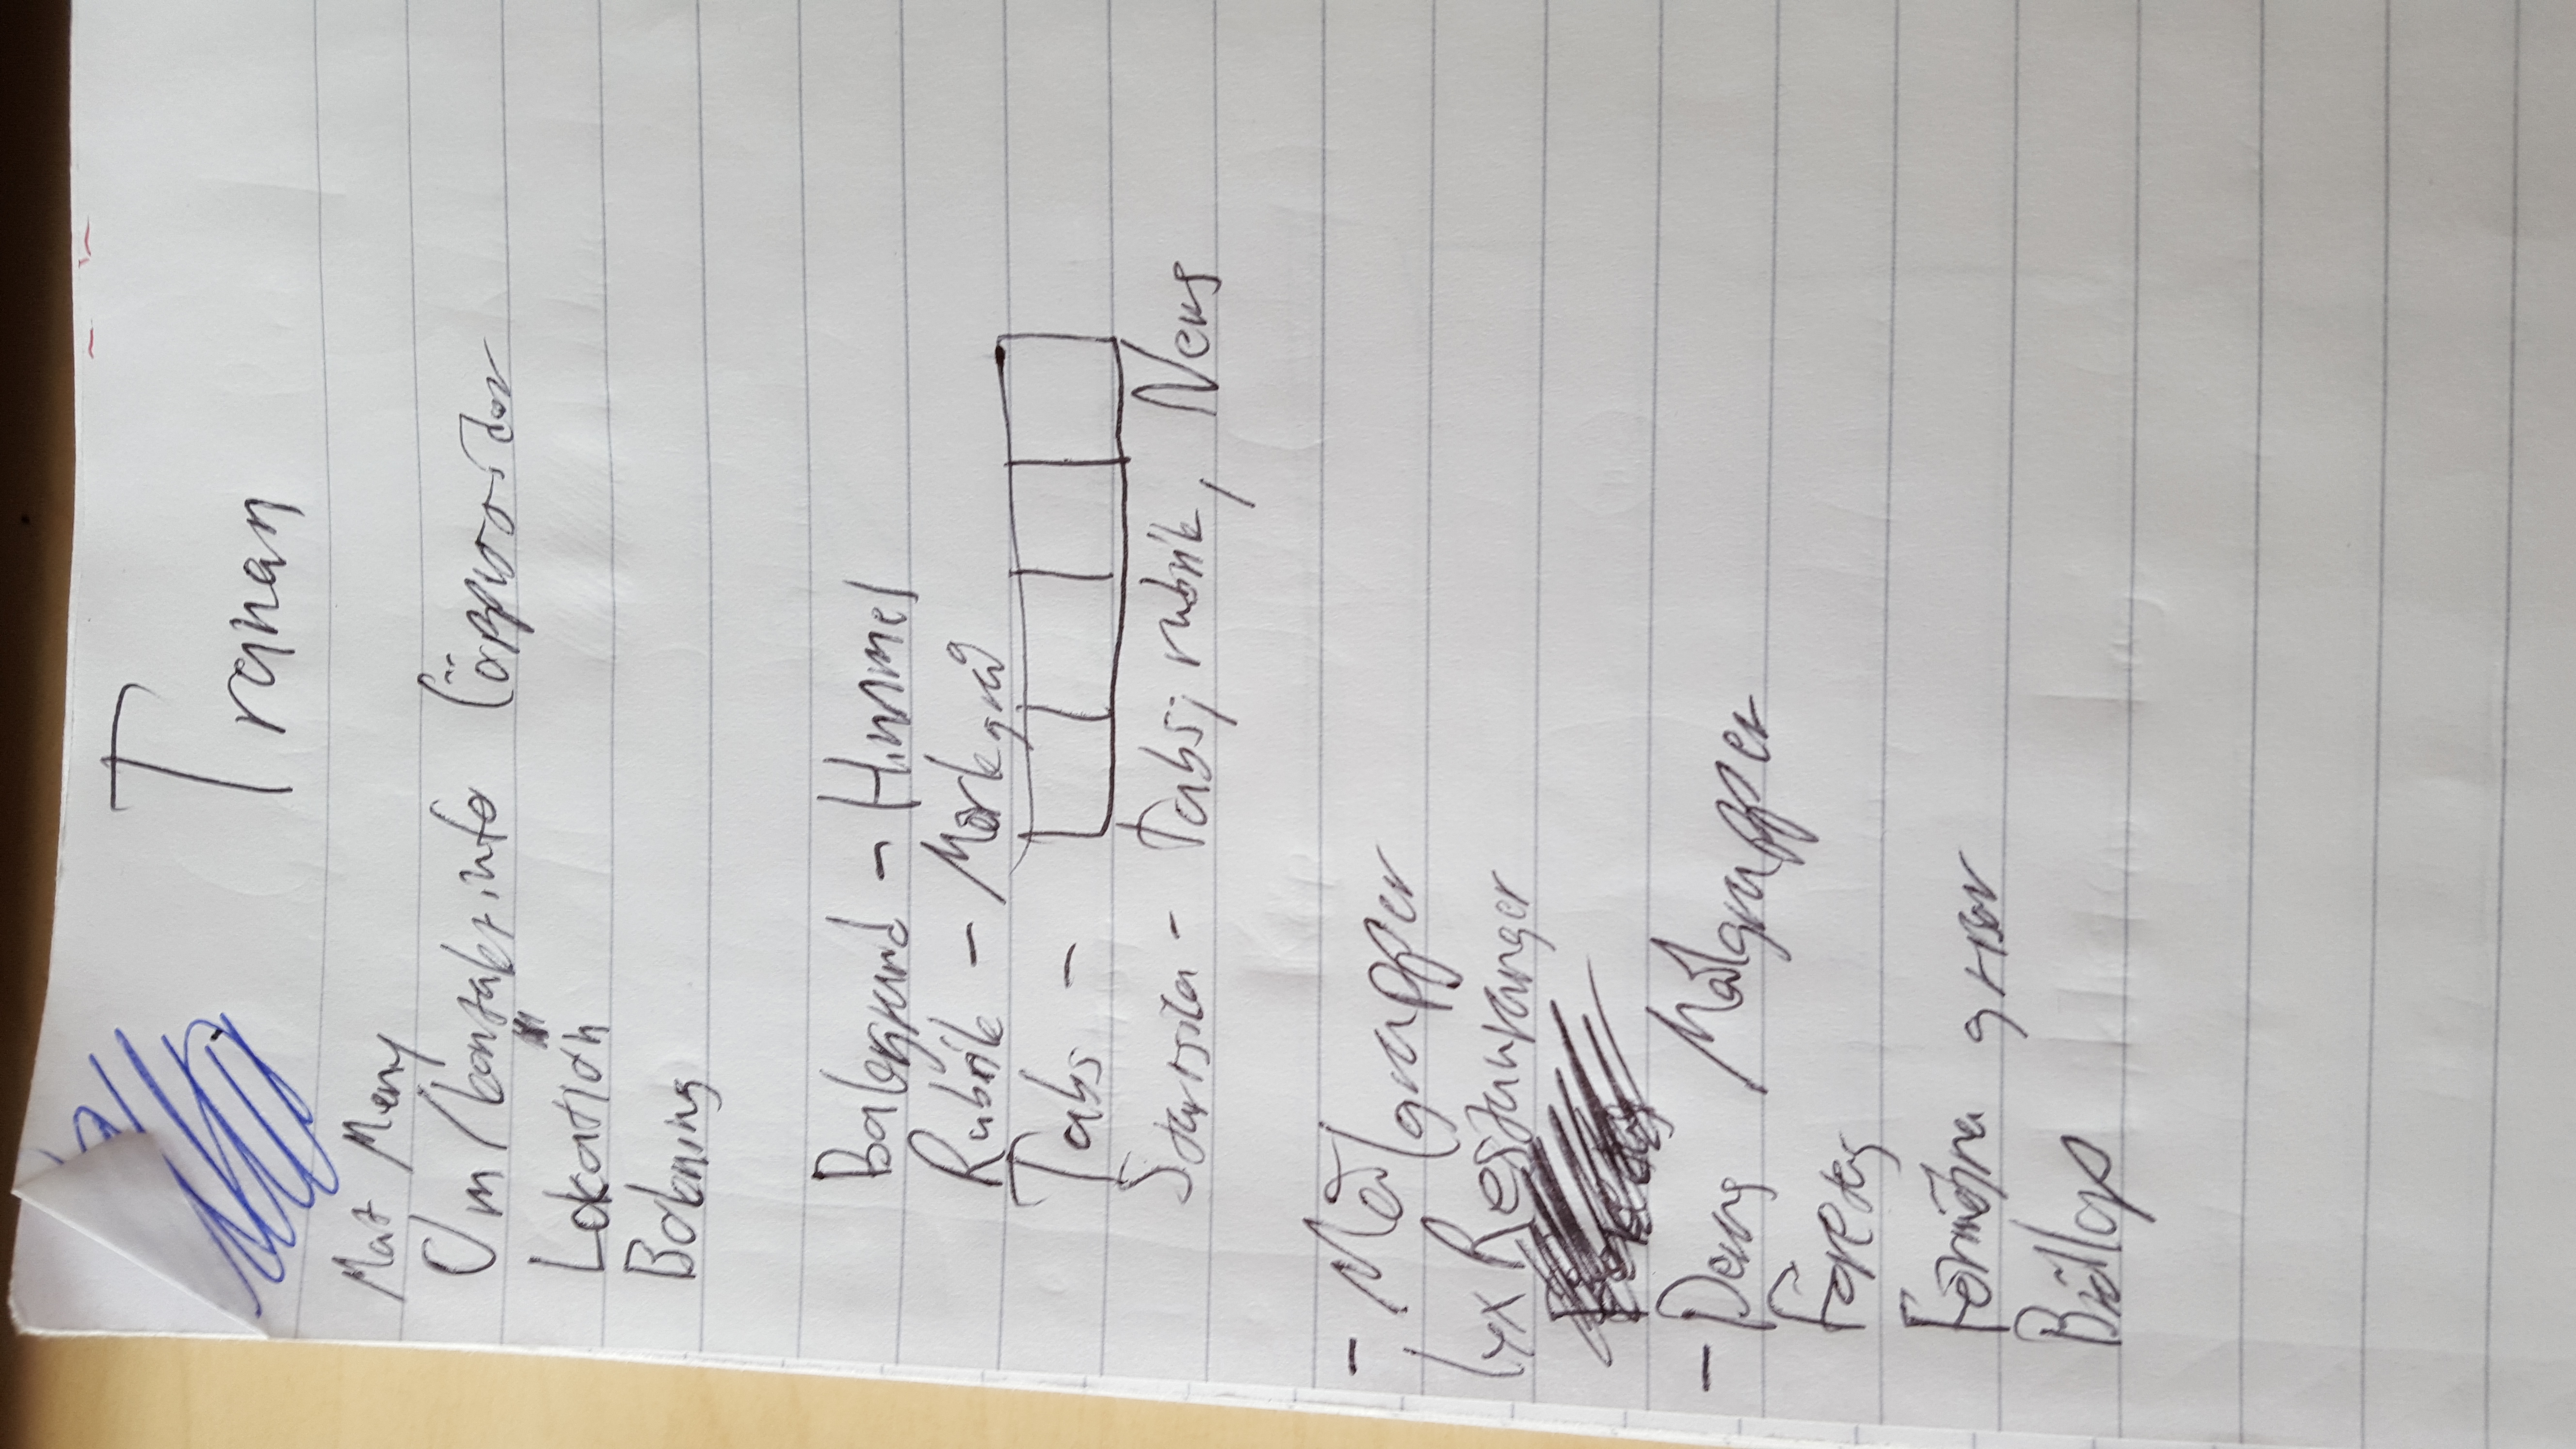 Tranan
Mat Meny
Om/kontaktinfo (öppettider
Lokation
Bokning
Bakgrund - Himmel
Rubrik - Mörkgrå
Tabs -
Startsida - Tabs, rubrik, News
- Målgrupper
lyx Restauranger
- Deras Målgrupper
Företag
Förmögna grisar
Bröllop